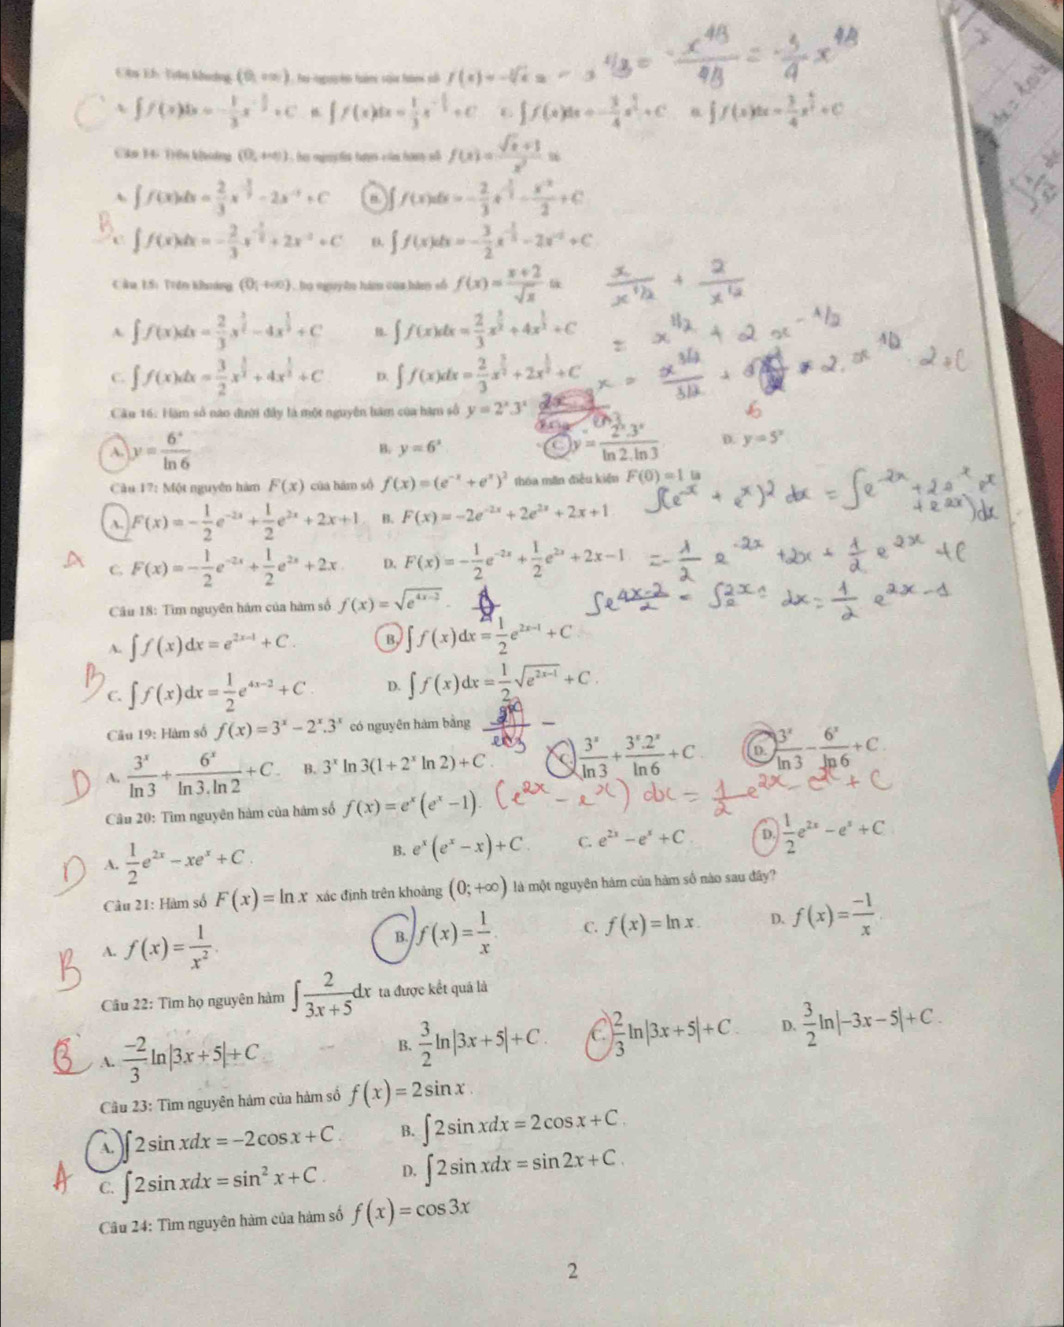 f(x) = -∛x là - x^{1/3} = -\frac{x^{4/3}}{4/3} = -\frac{3}{4} x^{4/3}
C A. ∫f(x)dx = ... + C B. ∫f(x)dx = ... + C C. ∫f(x)dx = -\frac{3}{4}x^{4/3} + C D. ∫f(x)dx = \frac{3}{4}x^{4/3} + C
Câu 14: Trên khoảng (0; +∞), họ nguyên hàm của hàm số
A. ∫f(x)dx = ... + C B. ∫f(x)dx = ... + C
B C. ∫f(x)dx = ... + C D. ∫f(x)dx = ... + C
Câu 15: Trên khoảng (0; +∞), họ nguyên hàm của hàm số f(x) = \frac{x+2}{\sqrt{x}} là \frac{x}{x^{1/2}} + \frac{2}{x^{1/2}}
A. ∫f(x)dx = \frac{2}{3}x^{3/2} - 4x^{1/2} + C B. ∫f(x)dx = \frac{2}{3}x^{3/2} + 4x^{1/2} + C = x^{1/2} + 2x^{-1/2}
C. ∫f(x)dx = \frac{3}{2}x^{3/2} + 4x^{1/2} + C D. ∫f(x)dx = \frac{2}{3}x^{3/2} + 2x^{1/2} + C
Câu 16: Hàm số nào dưới đây là một nguyên hàm của hàm số y = 2^x.3^x
A. y = \frac{6^x}{ln 6} B. y = 6^x C. y = \frac{2^x.3^x}{ln 2.ln 3} D. y = 5^x
Câu 17: Một nguyên hàm F(x) của hàm số f(x) = (e^{-x} + e^x)^2 thỏa mãn điều kiện F(0) = 1 là
∫(e^{-x} + e^x)^2 dx = ∫e^{-2x} + 2e^{-x}e^x + e^{2x})dx
A. F(x) = -\frac{1}{2}e^{-2x} + \frac{1}{2}e^{2x} + 2x + 1 B. F(x) = -2e^{-2x} + 2e^{2x} + 2x + 1.
A C. F(x) = -\frac{1}{2}e^{-2x} + \frac{1}{2}e^{2x} + 2x. D. F(x) = -\frac{1}{2}e^{-2x} + \frac{1}{2}e^{2x} + 2x - 1 = -\frac{1}{2}e^{-2x} + 2x + \frac{1}{2}e^{2x} + C
Câu 18: Tìm nguyên hàm của hàm số f(x) = \sqrt{e^{4x-2}}.
A. ∫f(x)dx = e^{2x-1} + C. B. ∫f(x)dx = \frac{1}{2}e^{2x-1} + C
B C. ∫f(x)dx = \frac{1}{2}e^{4x-2} + C. D. ∫f(x)dx = \frac{1}{2}\sqrt{e^{2x-1}} + C.
Câu 19: Hàm số f(x) = 3^x - 2^x.3^x có nguyên hàm bằng
D A. \frac{3^x}{ln 3} + \frac{6^x}{ln 3.ln 2} + C. B. 3^x ln 3(1 + 2^x ln 2) + C. C. \frac{3^x}{ln 3} + \frac{3^x.2^x}{ln 6} + C. D. \frac{3^x}{ln 3} - \frac{6^x}{ln 6} + C.
Câu 20: Tìm nguyên hàm của hàm số f(x) = e^x(e^x - 1). (e^{2x} - e^x) dx = \frac{1}{2}e^{2x} - e^x + C
D A. \frac{1}{2}e^{2x} - xe^x + C. B. e^x(e^x - x) + C. C. e^{2x} - e^x + C. D. \frac{1}{2}e^{2x} - e^x + C.
Câu 21: Hàm số F(x) = ln x xác định trên khoảng (0; +∞) là một nguyên hàm của hàm số nào sau đây?
B A. f(x) = \frac{1}{x^2}. B. f(x) = \frac{1}{x}. C. f(x) = ln x. D. f(x) = \frac{-1}{x}.
Câu 22: Tìm họ nguyên hàm ∫\frac{2}{3x+5}dx ta được kết quả là
A. \frac{-2}{3}ln|3x+5| + C. B. \frac{3}{2}ln|3x+5| + C. C. \frac{2}{3}ln|3x+5| + C. D. \frac{3}{2}ln|-3x-5| + C.
Câu 23: Tìm nguyên hàm của hàm số f(x) = 2sin x.
A. ∫2sin xdx = -2cos x + C. B. ∫2sin xdx = 2cos x + C.
A C. ∫2sin xdx = sin^2 x + C. D. ∫2sin xdx = sin 2x + C.
Câu 24: Tìm nguyên hàm của hàm số f(x) = cos 3x
2